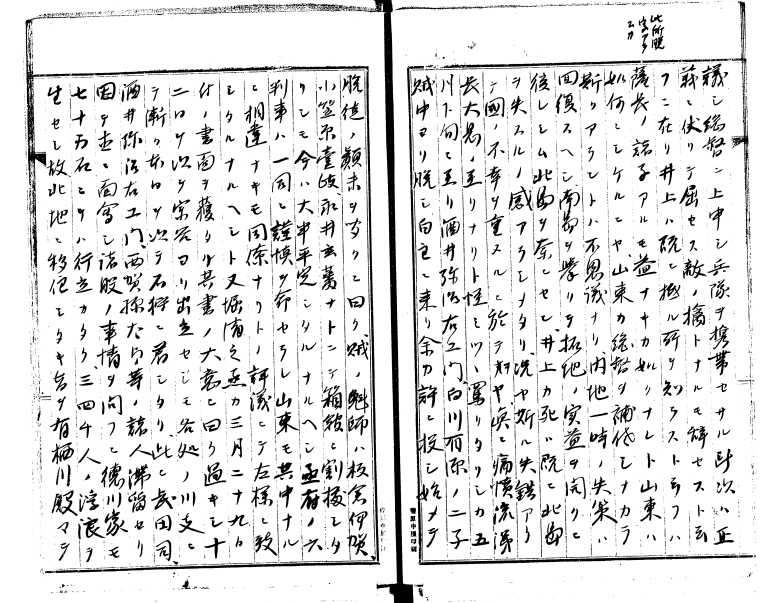 議シ総督ニ上申シ兵隊ヲ携帯セサル時次ハ正
義ニ伏リテ屈セス敵ノ擒トナルモ辞セスト云
フニ在リ井上ハ既ニ極ル所ヲ知ラスト云フハ
薩長ノ諸子アルモ益ナキカ如クナレト山東ハ
如何ニシケルニヤ山東カ総督ヲ補佐シナカラ
斯クアラントハ不思議ナリ内地一時ノ失策ハ
回復スヘシ南島ヲ挙ケ拓地ノ実益ヲ開クニ
後レシム此島ヲ奈ニセン井上カ死ハ既ニ此島
ヲ失スルノ感アラシメタリ况ヤ斯ル失錯アリ
テ國ノ不幸ヲ重スルニ於テヤ噫ニ痛憤流涕
長大息ノ至リナリト怪ミツヽ罵リタリシカ五
川下旬ニ至リ酒井弥治右エ門白川有原ノ二子
賊中ヨリ脱シ白立ニ来リ余カ許ニ投シ始メテ
脱徒ノ顛末ヲ聞クニ曰ク賊ノ魁師ハ板倉伊賀
小笠原壹岐永井玄蕃ナトニテ箱館ニ割據シタ
リシモ今ハ大卒平定シタルナルヘシ函府ノ六
判事ハ一同ニ謹慎ヲ命セラレ山東モ其中ナル
ニ相違ナキモ同僚ナリトノ評議ニテ左様ニ致
シタルナルヘシト又堀清之丞カ三月二十九日
付ノ書面ヲ獲タリ其書ノ大意ニ曰ク過キシ十
二日ヲ以テ宗谷ヨリ出立セシモ各処ノ川支ニ
テ漸ク本日ヲ以テ石狩ニ着シタリ此ニ長田司
酒井弥治右エ門西賀孫太郎等ノ諸人滞留セリ
因テ直ニ面會シ諸般ノ事情ヲ問フニ徳川家モ
七十万石ニテハ行立カタク三四千人ノ浮浪ヲ
生セシ故此地ニ移住シタキ旨ヲ有栖川殿マテ